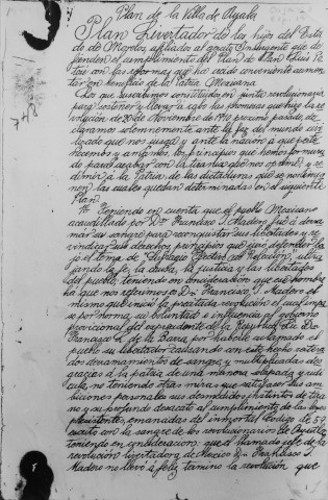 Plan de la Villa de Ayala
Plan Livertador de los hijos del Esta
do de Morelos, afiliados al ejercito Insurgente que de
fienden el cumplimiento del Plan de San Luis Po
tosi con las reformas que ha creido conveniente aumen
tar en beneficio de la Patria Mexicana
Los que suscribimos constituidos en junta revolucionaria
para sostener y llevar a cabo las promesas que hizo la re
volución de 20 de Noviembre de 1910 proximo pasado, de
claramos solemnemente ante la faz del mundo civi
lizado que nos juzga y ante la nacion a que perte
necemos y amamos, los principios que hemos formula
do para acabar con la tirania que nos oprime y re
dimir a la Patria de las dictaduras que se nos impo
nen las cuales quedan determinadas en el siguiente
Plan
1º Teniendo en cuenta que el pueblo Mexicano
acaudillado por Dn Francisco I. Madero fué a derra
mar su sangre para reconquistar sus libertades y re
vindicar sus derechos
el lema de "Sufragio Efectivo no Reelección", ultra
jando la fe, la causa, la justicia y las libertades
del pueblo; teniendo en consideracion que ese hombre
ha que nos referimos es Dn Francisco I. Madero, el
mismo que inició la precitada revolución el cual impu
so por norma su voluntad e influencia al gobierno
provicional del expresidente de la Republica Lic Dn
Francisco L. de la Barra por haberle aclamado el
pueblo su Libertador causando con este hecho reitera
dos derramamientos de sangre y multiplicadas des
gracias a la patria de una manera solapada y ridi
cula, no teniendo otras miras que satisfacer sus am
biciones personales sus desmedidos instintos de tira
no y su profundo desacato al cumplimiento de las leyes
preexistentes, emanadas del inmortal Codigo de 57
escrito con la sangre de los revolucionarios de Ayutla
teniendo en consideracion: que el llamado jefe de la
revolución libertadora de Mexico Dn Francisco I.
Madero no llevó a feliz termino la revolución que